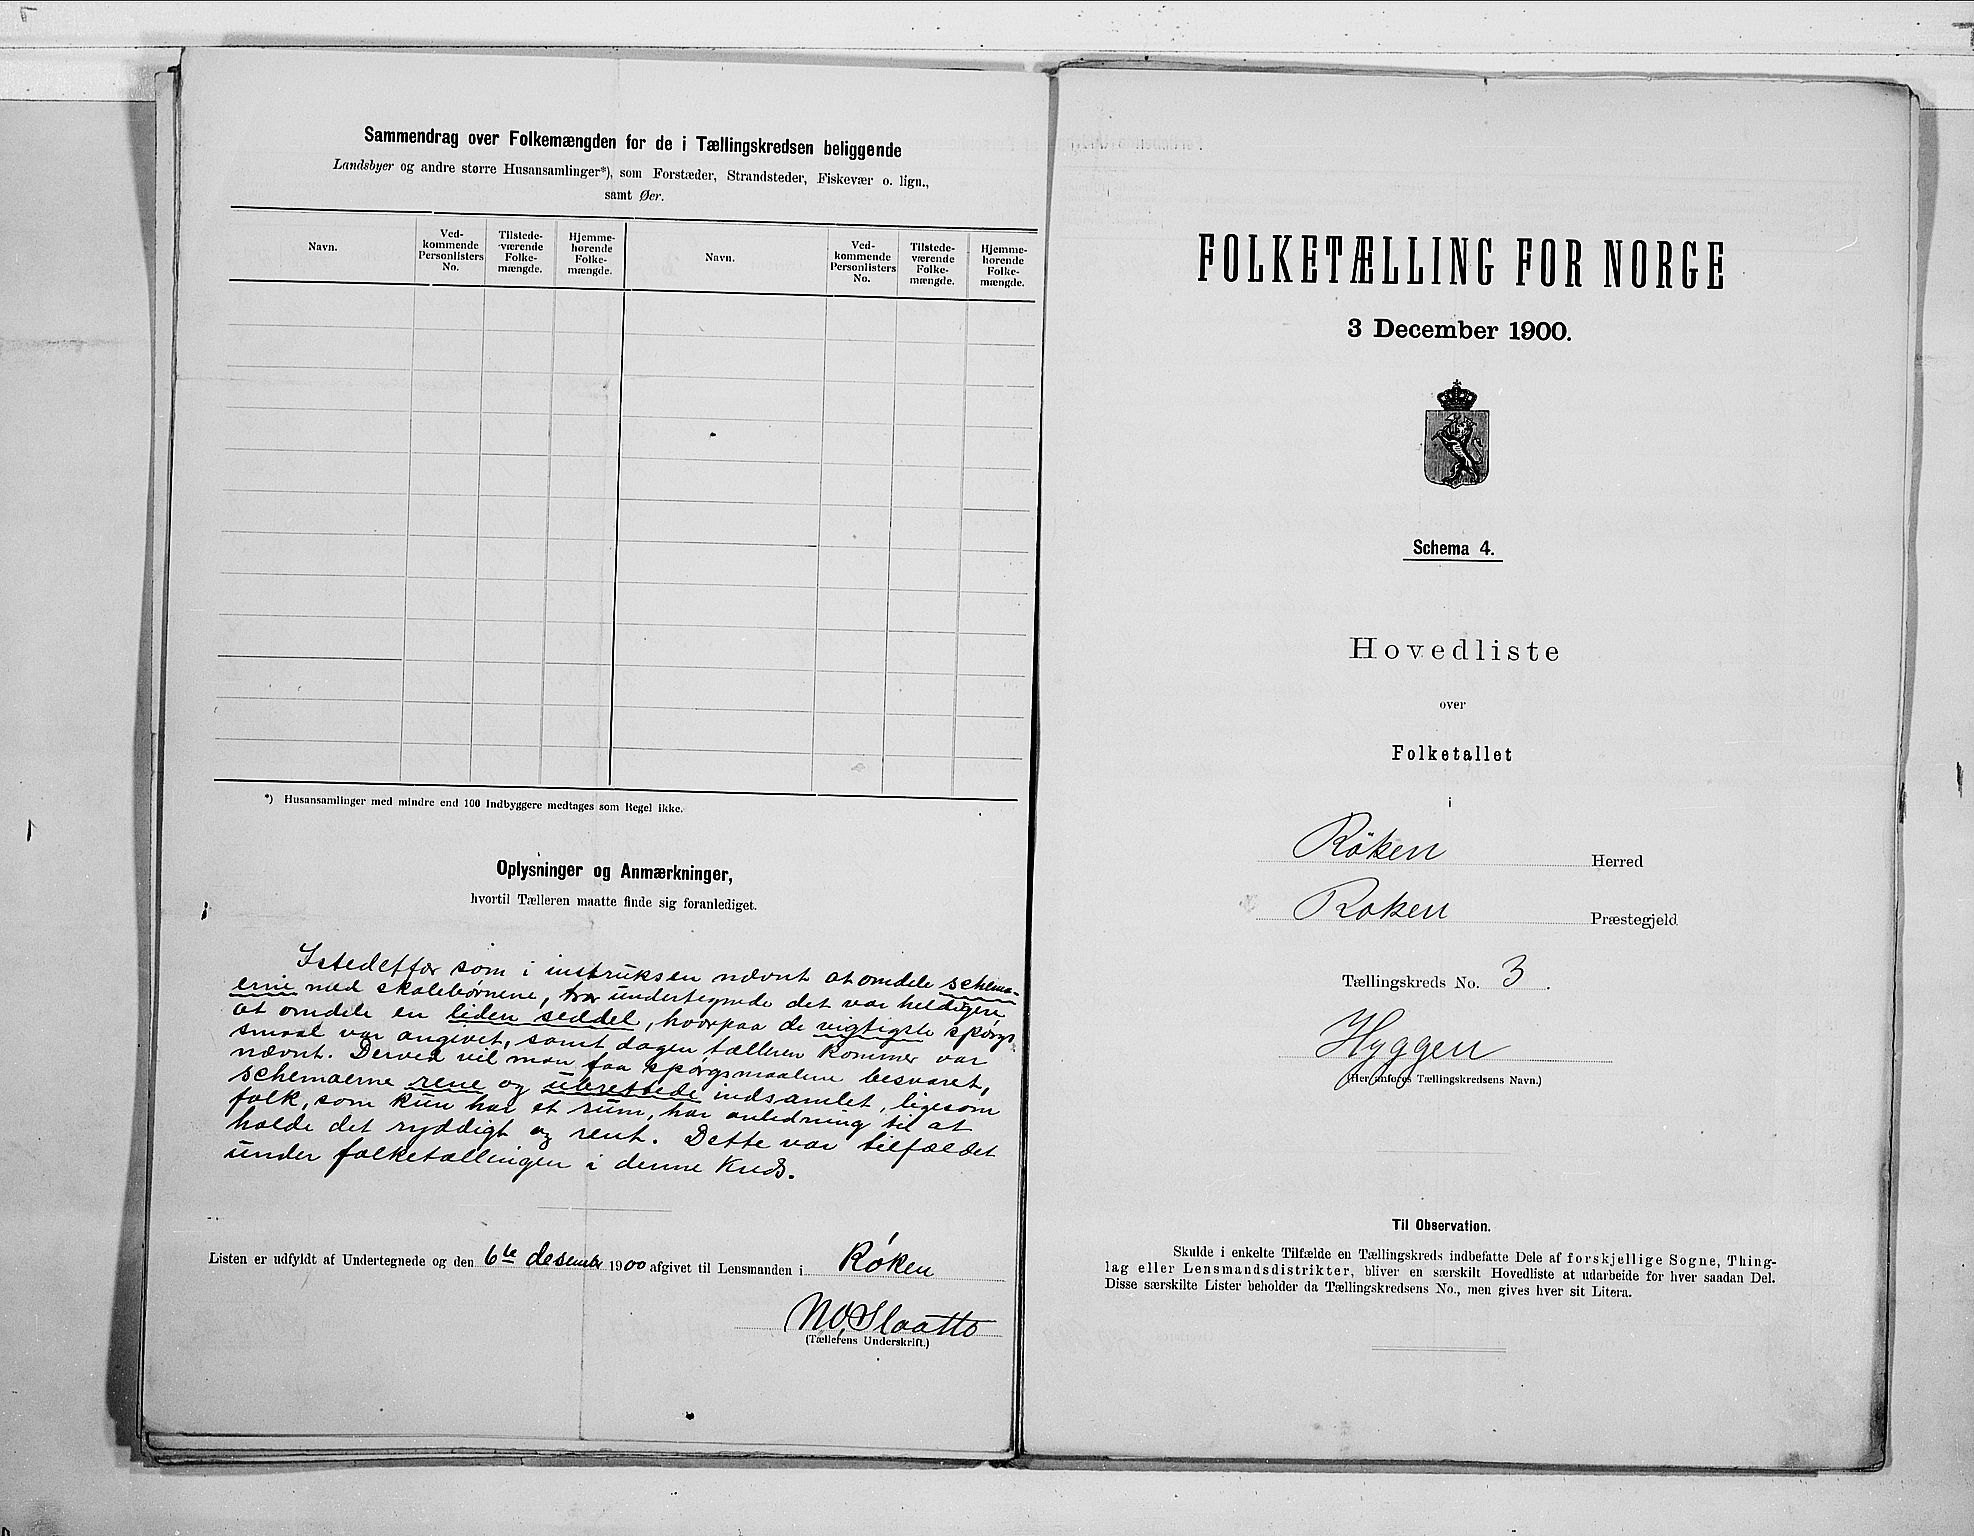 Sammendrag over Folkemængden for de i Tællingskredsen beliggende
Landsbyer og andre større Husansamlinger*), som Forstæder, Strandsteder, Fiskevær o. lign.,
samt Øer.
Navn.
Ved-
kommende
Personlisters
No.
Tilstede-
værende
Folke-
mængde.
Hjemme-
hørende
Folke-
mængde.
Navn.
Ved-
kommende
Personlisters
No.
Tilstede-
værende
Folke-
mængde.
Hjemme-
hørende
Folke-
mængde.
*) Husansamlinger med mindre end 100 Indbyggere medtages som Regel ikke.
Oplysninger og Anmærkninger,
hvortil Tælleren maatte finde sig foranlediget.
Istedetfor som i instruksen nævnt at omdele schema-
erne med skolebørnene, tror undertegnede det var heldigere
at omdele en liden seddel, hvorpaa de vigtigste spørgs-
smaal var angivet, samt dagen tælleren kommer var
nævnt. Derved vil man faa spørgsmaalene besvaret,
schemaerne rene og ubrettede indsamlet, ligesom
folk, som kun har et rum, har anledning til at
holde det ryddigt og rent. Dette var tilfældet
under folketællingen i denne Kreds.
Listen er udfyldt af Undertegnede og den 6te desember 1900 afgivet til Lensmanden i Røken
N.O. Slaatto
(Tællerens Underskrift.)
FOLKETÆLLING FOR NORGE
3 December 1900.
Schema 4.
Hovedliste
over
Folketallet
i
Röken Herred
Roken Præstegjeld
Tællingskreds No. 3.
Hyggen
(Her anføres Tællingskredsens Navn.)
Til Observation.
Skulde i enkelte Tilfælde en Tællingskreds indbefatte Dele af forskjellige Sogne, Thing-
lag eller Lensmandsdistrikter, bliver en særskilt Hovedliste at udarbeide for hver saadan Del.
Disse særskilte Lister beholder da Tællingskredsens No., men gives hver sit Litera.